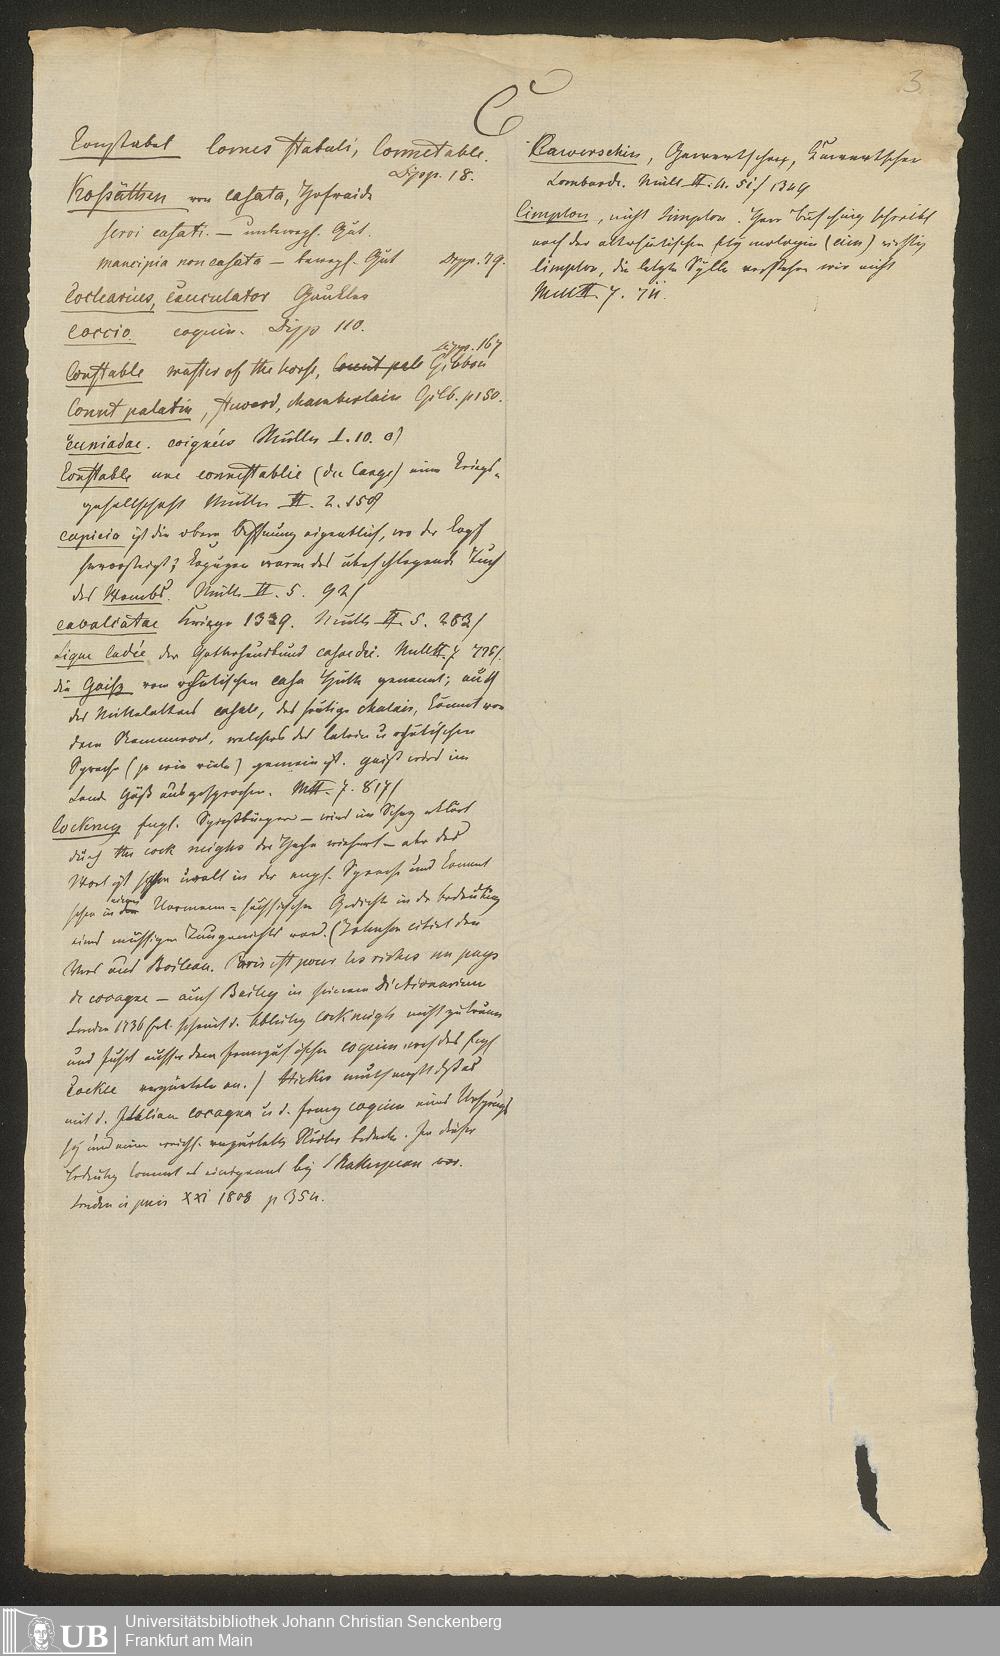 3
C
Constabel Comes stabuli, Connetable.
Dipp. 18.
Kossäthen von casata, Hofraide
servi casati. – unbewegl. Gut.
mancipia non casata – bewegl. Gut Dipp. 79.
Coclearius, Cauculator Gaukler
coccio. coquin. Dipp 110.
Dipp. 167
Constable master of the horse, Count pala Gibbon
Count palatin, steward, chamberlain Gib. p 150.
cuniadae. coignées Müller I. 10. d)
Constable une connestablie (du Cange) eine Kriegs-
gesellschaft Müller II. 2. 158
capicio ist die obere Öffnung eigentlich, wo der Kopf
hervorsteigt; Kapuzen waren das überschlagende Tuch
des Wambs. Müller II. 5. 92)
cavalcatae Kriege 1339. Müller II. 5. 283)
Ligue Cadée der Gotteshausbund casa dei. Müll II. 7
die Gaiss von rhätischen casa Hütte genannt; auch
des Mittelalters casal, das heutige chalais, kommt von
dem Stammwort, welches der latein u rhätischen
Sprache (so wie viele) gemein ist. Gaiss wird im
Lande Gäss ausgesprochen. M II. 7. 817)
Cockney Engl. Spiessbürger – wird im Scherz erklärt
durch the cock neighs der Hahn wiehert – aber das
Wort ist schon uralt in der engl. Sprache und kommt
schon in einem Normann-sächsischen Gedicht in der Bedeutung
eines müssigen Taugenichts vor. (Johnson citirt den
Vers aus Boileau. Paris est pour les riches un pays
de cocagne – auch Bailey in seinem Dictionarium
London 1736 fol. scheint d. Ableitg cock neighs nicht zu trauen
und führt ausser dem französischen coquin noch das Engl
Cockle verzärteln an.) Hickes muthmasst dass es
mit d. Italien cocagna u d. franz coquin eines Ursprungs
sey und einen weichl. verzärtelten Städter bedeute. In dieser
Bedeutg kommt es einigemal bey Shakespear vor.
London u paris XXI 1808 p 354.
Kawerschin, Gawertschen, Kawertschen
Lombarde. Müll II. 4. 51) 1349
Cimplon, nicht Simplon. Herr Büsching schreibt
nach der altrhätischen Etymologie (cim) richtig
Cimplon, die letzte Sylbe verstehen wir nicht
Müll II 7. 711.
UB
Universitätsbibliothek Johann Christian Senckenberg
Frankfurt am Main